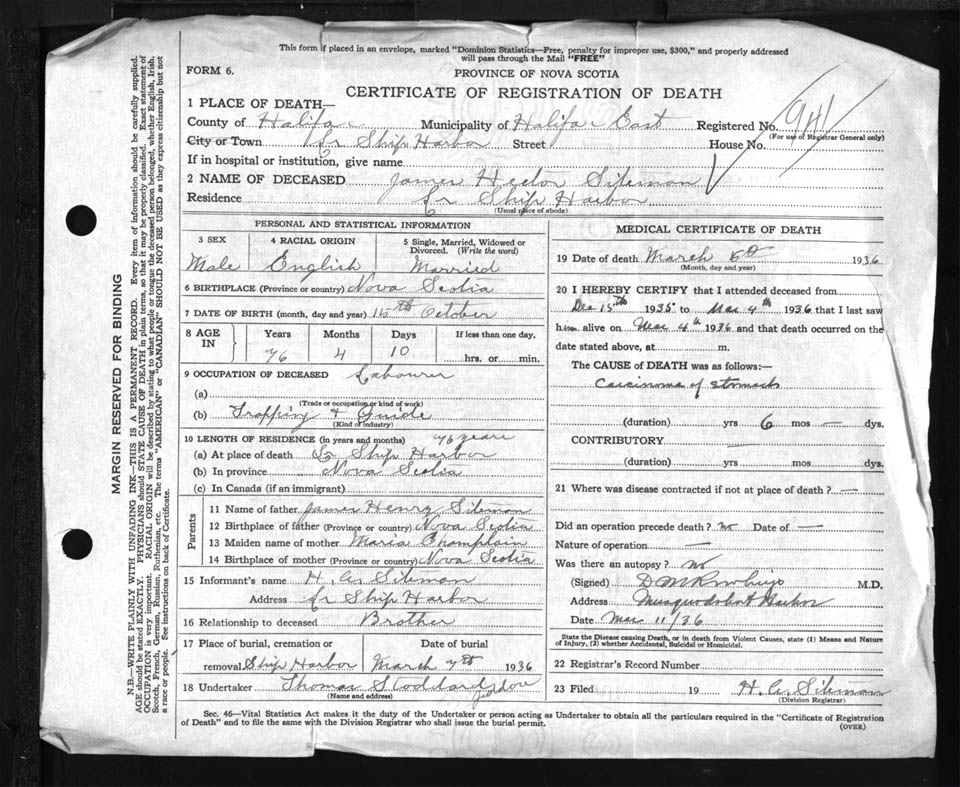 This form if placed in an envelope, marked "Dominion Statistics—Free, penalty for improper use, $300," and properly addressed
will pass through the Mail "FREE"
FORM 6.
PROVINCE OF NOVA SCOTIA
CERTIFICATE OF REGISTRATION OF DEATH
1 PLACE OF DEATH—
County of Halifax Municipality of Halifax East Registered No. 941
(For use of Registrar General only)
City or Town Lr Ship Harbor Street House No.
If in hospital or institution, give name
2 NAME OF DECEASED James Hector Siteman
Residence Lr Ship Harbor
(Usual place of abode)
PERSONAL AND STATISTICAL INFORMATION
3 SEX 4 RACIAL ORIGIN 5 Single, Married, Widowed or
Divorced. (Write the word)
Male English Married
6 BIRTHPLACE (Province or country) Nova Scotia
7 DATE OF BIRTH (month, day and year) 15th October
8 AGE IN Years Months Days If less than one day,
76 4 10 hrs. or min.
9 OCCUPATION OF DECEASED Labourer
(a)
(Trade or occupation or kind of work)
(b) Trapping & Guide
(Kind of industry)
10 LENGTH OF RESIDENCE (in years and months) 76 years
(a) At place of death Lr Ship Harbor
(b) In province Nova Scotia
(c) In Canada (if an immigrant)
Parents
11 Name of father James Henry Siteman
12 Birthplace of father (Province or country) Nova Scotia
13 Maiden name of mother Maria Champlain
14 Birthplace of mother (Province or country) Nova Scotia
15 Informant's name H. C. Siteman
Address Lr Ship Harbor
16 Relationship to deceased Brother
17 Place of burial, cremation or Date of burial
removal Ship Harbor March 7th 1936
18 Undertaker Thomas Stoddard
(Name and address)
MEDICAL CERTIFICATE OF DEATH
19 Date of death March 5th 1936
(Month, day and year)
20 I HEREBY CERTIFY that I attended deceased from
Dec 15th 1935 to Mar 4th 1936 that I last saw
him alive on Mar 4th 1936 and that death occurred on the
date stated above, at m.
The CAUSE of DEATH was as follows:—
Carcinoma of stomach
(duration) yrs 6 mos — dys.
CONTRIBUTORY —
(duration) yrs. mos. dys.
21 Where was disease contracted if not at place of death? —
Did an operation precede death? no Date of —
Nature of operation —
Was there an autopsy? no
(Signed) M.D.
Address Musquodoboit Harbor
Date Mar 11/36
State the Disease causing Death, or in death from Violent Causes, state (1) Means and Nature
of Injury, (2) whether Accidental, Suicidal or Homicidal.
22 Registrar's Record Number
23 Filed 19 H. C. Siteman
(Division Registrar)
Sec. 46—Vital Statistics Act makes it the duty of the Undertaker or person acting as Undertaker to obtain all the particulars required in the "Certificate of Registration
of Death" and to file the same with the Division Registrar who shall issue the burial permit.
(OVER)
MARGIN RESERVED FOR BINDING
N.B.—WRITE PLAINLY WITH UNFADING INK—THIS IS A PERMANENT RECORD. Every item of information should be carefully supplied.
AGE should be stated EXACTLY. PHYSICIANS should STATE CAUSE OF DEATH in plain terms, so that it may be properly classified. Exact statement of
OCCUPATION is very important. RACIAL ORIGIN will be described by stating to what people or tongue the deceased person belonged, whether English, Irish,
Scotch, French, German, Russian, Ruthenian, etc. The terms "AMERICAN" or "CANADIAN" SHOULD NOT BE USED as they express citizenship but not
a race or people. See instructions on back of Certificate.